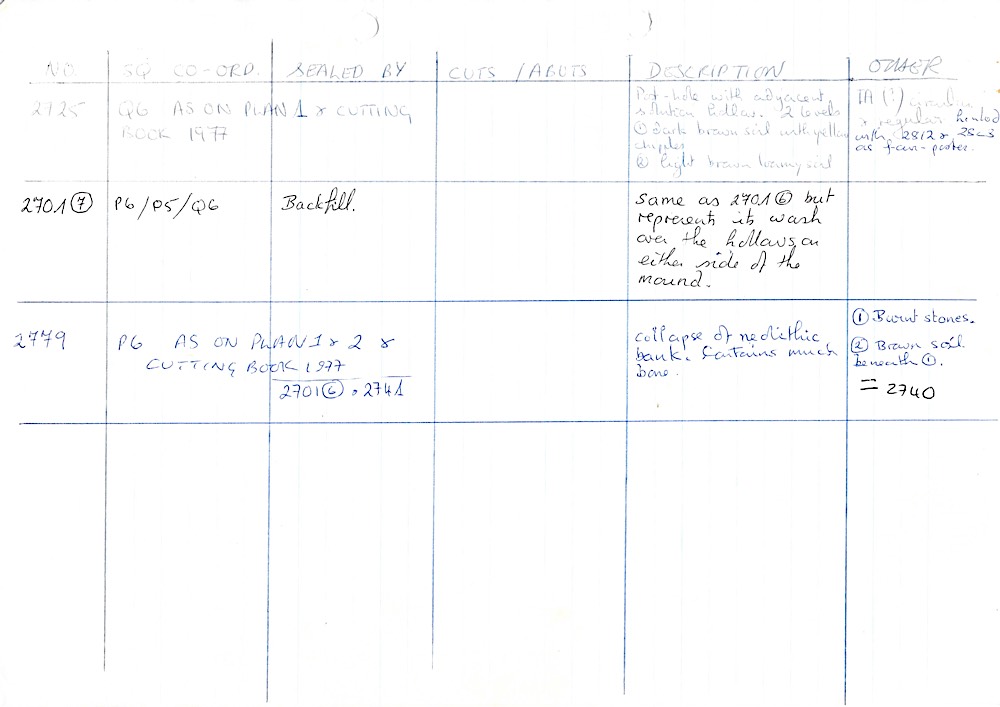 NO. SQ CO-ORD. SEALED BY CUTS / ABUTS DESCRIPTION OTHER
2725 Q6 AS ON PLAN 1 & CUTTING
BOOK 1977
Post-hole with adjacent
solution hollow. 2 levels
① Dark brown soil with yellow
chips
② light brown loamy soil
IA (?) circular
& regular linked
with 2812 &
as four-poster.
2701 ⑦ P6/P5/Q6 Backfill.
Same as 2701 ⑥ but
represents its wash
over the hollows on
either side of the
mound.
2779 P6 AS ON PLAN 1 & 2 &
CUTTING BOOK 1977
2701 ⑥, 2741
collapse of neolithic
bank. Contains much
bone.
① Burnt stones.
② Brown soil
beneath ①.
= 2740